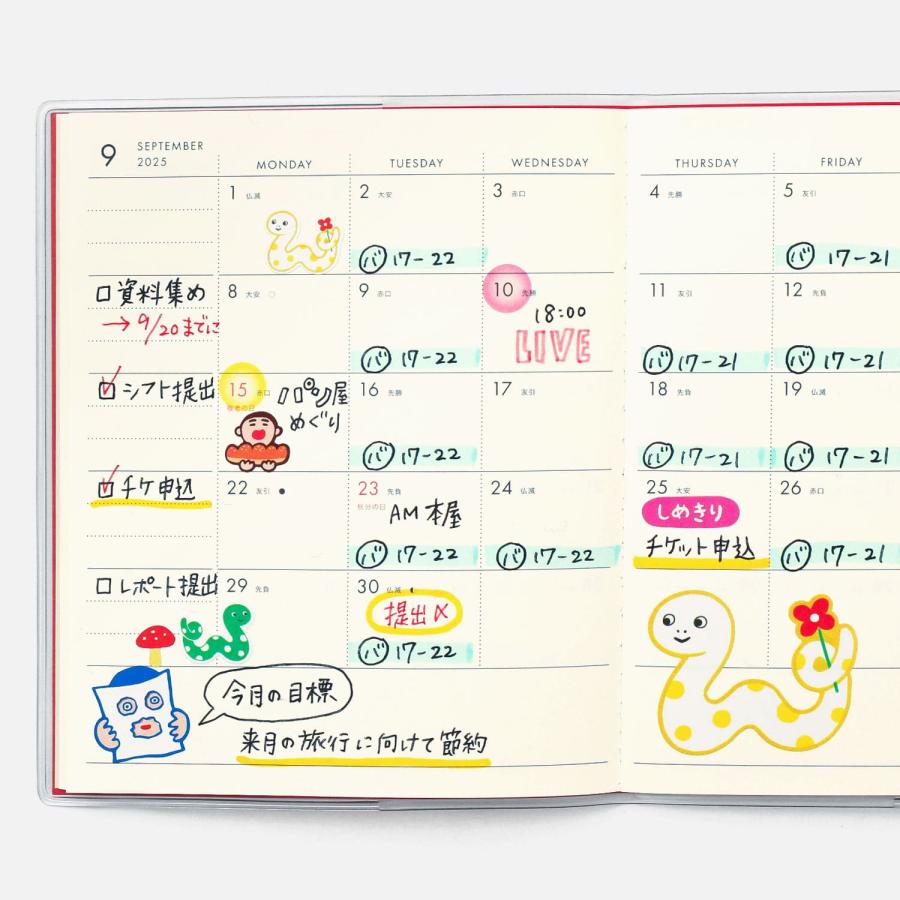 9 SEPTEMBER
2025
MONDAY TUESDAY WEDNESDAY THURSDAY FRIDAY
1 仏滅
2 大安
バ 17-22
3 赤口
4 先勝
5 友引
バ 17-21
□資料集め
→9/20までに
8 大安
9 赤口
バ 17-22
10 先勝
18:00
LIVE
11 友引
バ 17-21
12 先負
バ 17-21
シフト提出
15 赤口
敬老の日
パン屋
めぐり
16 先勝
バ 17-22
17 友引
18 先負
バ 17-21
19 仏滅
バ 17-21
チケ申込
22 友引
23 先負
秋分の日
AM 本屋
バ 17-22
24 仏滅
バ 17-22
25 大安
しめきり
チケット申込
26 赤口
バ 17-21
□レポート提出
29 先負
30 仏滅
提出〆
バ 17-22
今月の目標
来月の旅行に向けて節約